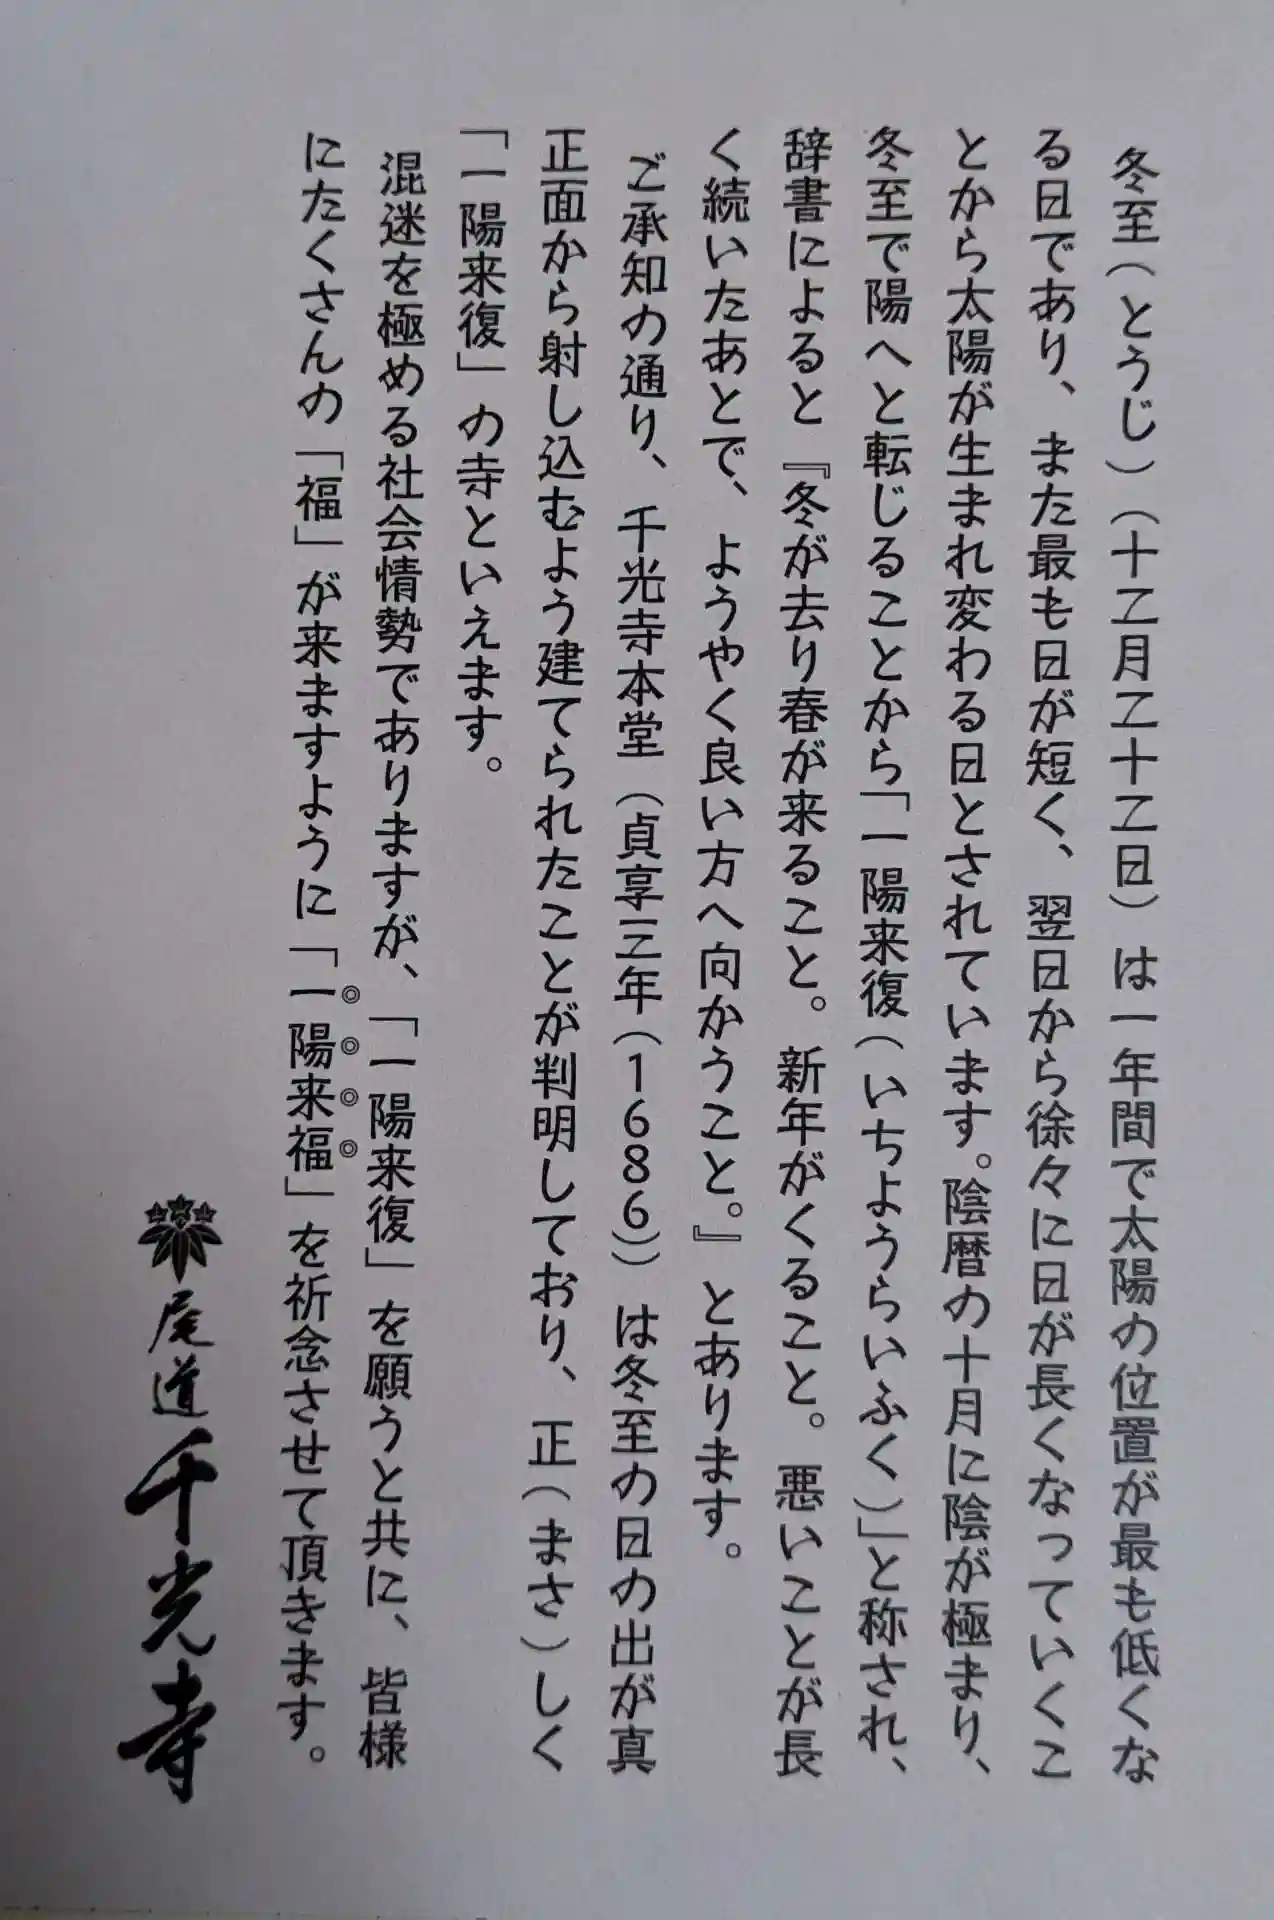 冬至(とうじ)(十二月二十二日)は一年間で太陽の位置が最も低くな
る日であり、また最も日が短く、翌日から徐々に日が長くなっていくこ
とから太陽が生まれ変わる日とされています。陰暦の十月に陰が極まり、
冬至で陽へと転じることから「一陽来復(いちようらいふく)」と称され、
辞書によると『冬が去り春が来ること。新年がくること。悪いことが長
く続いたあとで、ようやく良い方へ向かうこと。』とあります。
ご承知の通り、千光寺本堂(貞享三年(1686))は冬至の日の出が真
正面から射し込むよう建てられたことが判明しており、正(まさ)しく
「一陽来復」の寺といえます。
混迷を極める社会情勢でありますが、「一陽来復」を願うと共に、皆様
にたくさんの「福」が来ますように「一陽来福」を祈念させて頂きます。
尾道千光寺